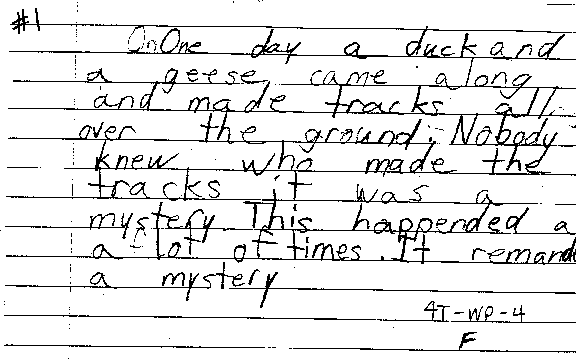 #1
OnOne day a duck and
a geese came along
and made tracks all
over the ground. Nobody
knew who made the
tracks it was a
mystery This happended a
a lot of times. It remande
a mystery
4T-WP-4
F